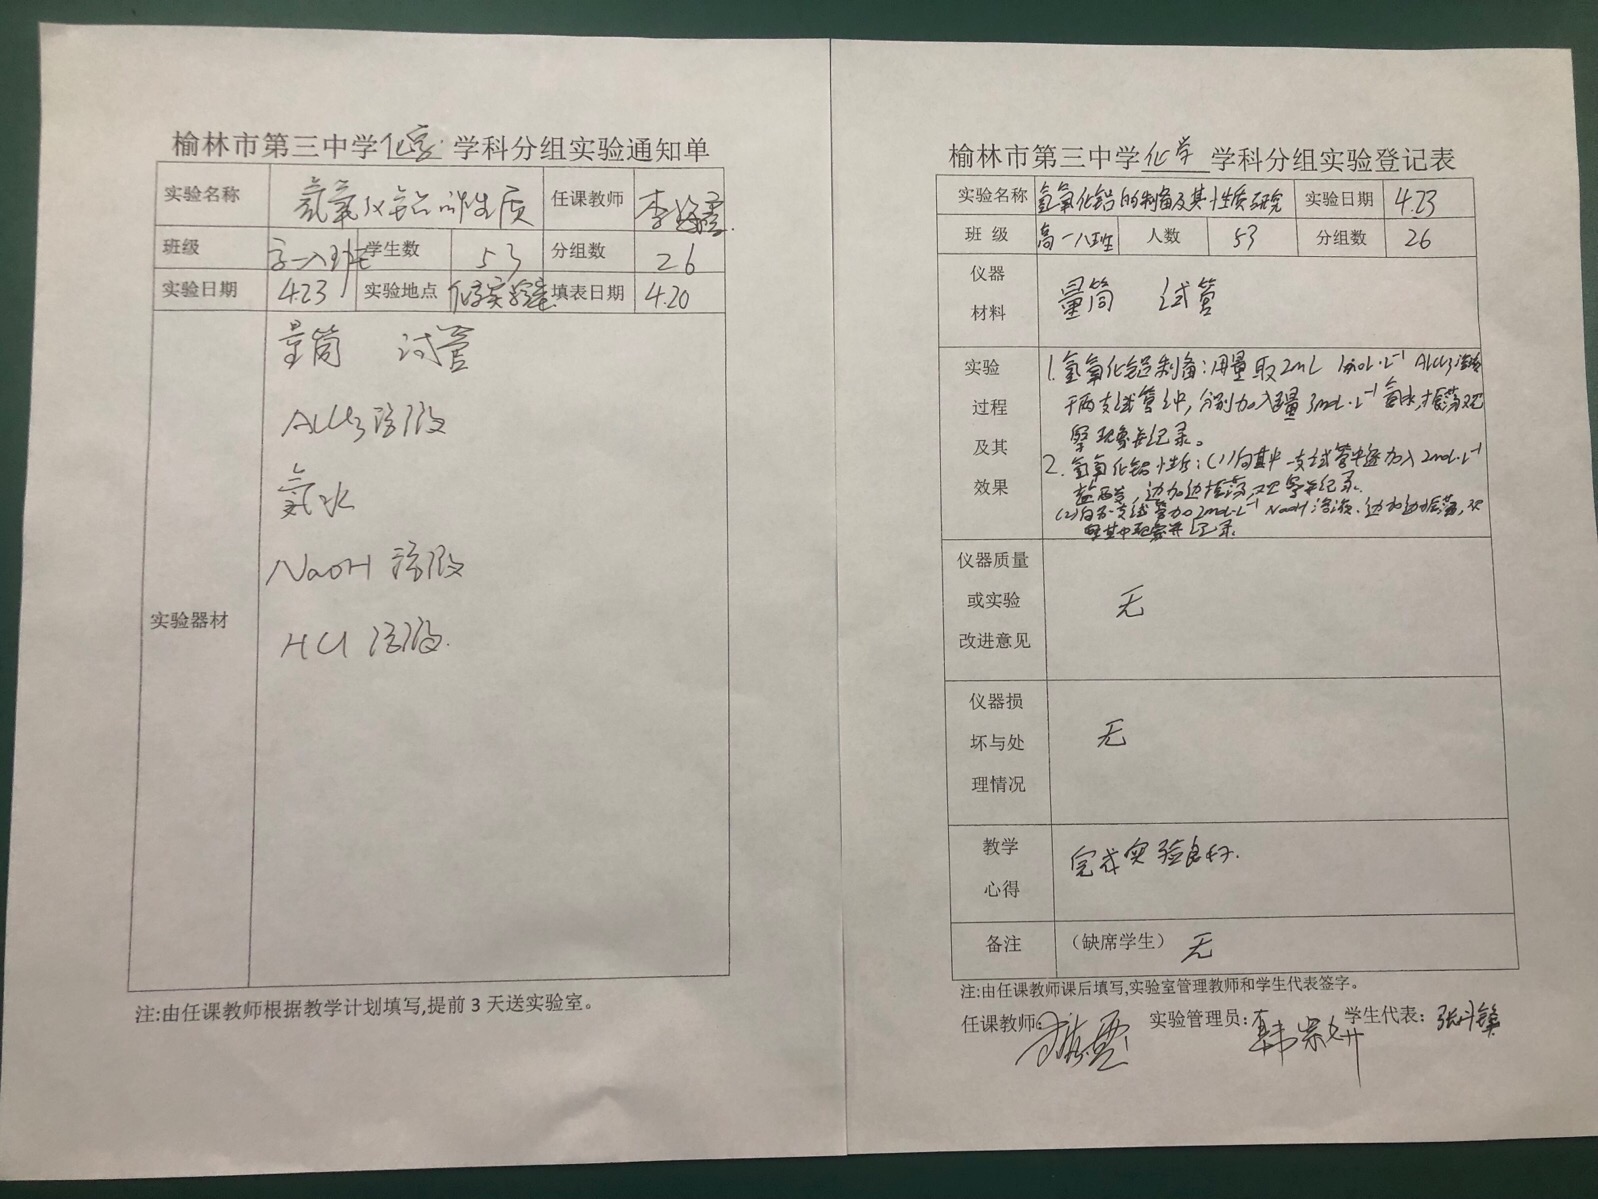 榆林市第三中学化学学科分组实验通知单
实验名称 氢氧化铝的性质 任课教师 李
班级 高一八班 学生数 53 分组数 26
实验日期 4.23 实验地点 化学实验室 填表日期 4.20
实验器材
量筒 试管
AlCl3溶液
氨水
NaOH 溶液
HCl 溶液.
注:由任课教师根据教学计划填写,提前 3 天送实验室。
榆林市第三中学化学学科分组实验登记表
实验名称 氢氧化铝的制备及其性质研究 实验日期 4.23
班 级 高一八班 人数 53 分组数 26
仪器
材料
量筒 试管
实验
过程
及其
效果
1. 氢氧化铝制备:用量取2mL 1mol·L⁻¹ AlCl3溶液
于两支试管中,分别加入 3mol·L⁻¹ 氨水,振荡观
察现象并记录。
2. 氢氧化铝性质:(1)向其中一支试管中逐加入2mol·L⁻¹
盐酸,边加边振荡,观察并记录.
(2)向另一支试管加2mol·L⁻¹ NaOH 溶液,边加边振荡,观
察其中现象并记录.
仪器质量
或实验
改进意见
无
仪器损
坏与处
理情况
无
教学
心得
完成实验良好.
备注 （缺席学生） 无
注:由任课教师课后填写,实验室管理教师和学生代表签字。
任课教师: 实验管理员: 学生代表: